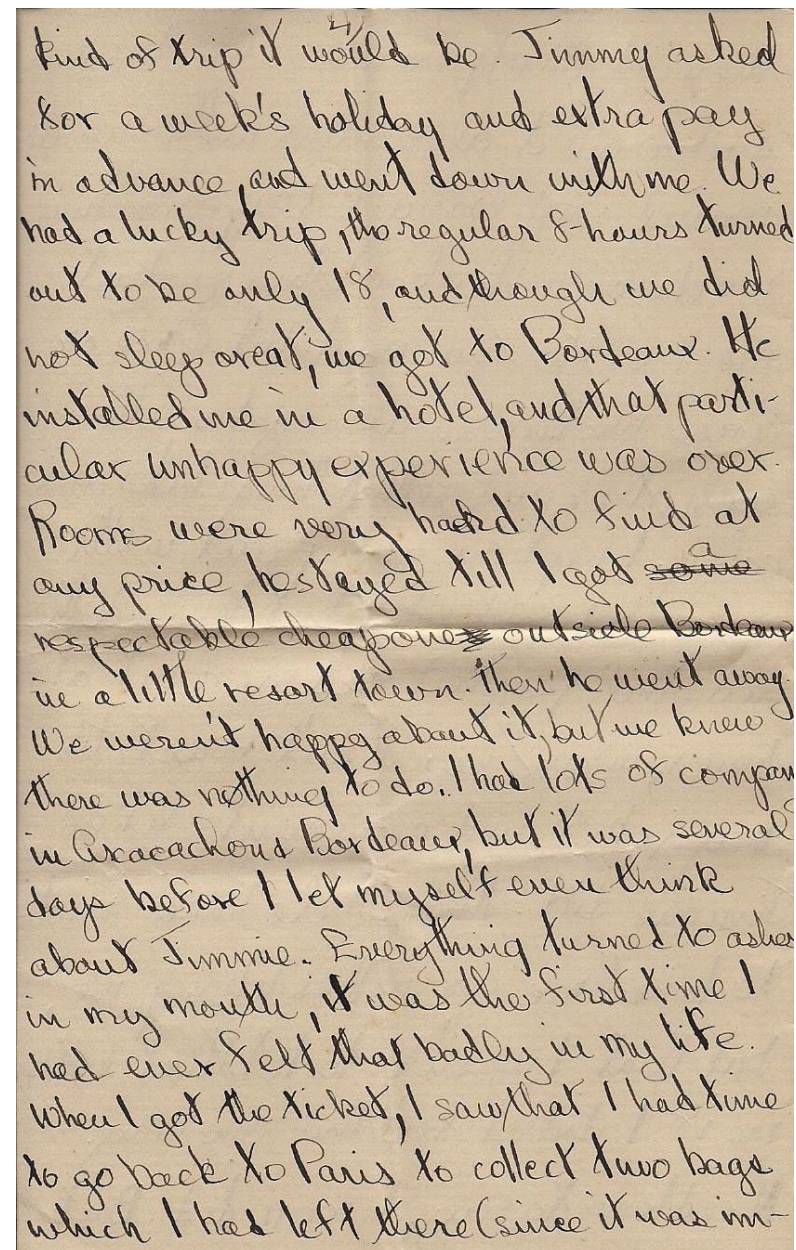 4)
kind of trip it would be. Jimmy asked
for a week's holiday and extra pay
in advance, and went down with me. We
had a lucky trip, the regular 8-hours turned
out to be only 18, and though we did
not sleep or eat, we got to Bordeaux. He
installed me in a hotel, and that parti-
cular unhappy experience was over.
Rooms were very hard to find at
any price, he stayed till I got some a
respectable cheap one outside Bordeaux
in a little resort town. Then he went away.
We weren't happy about it, but we knew
there was nothing to do. I had lots of company
in Aracachon & Bordeaux, but it was several
days before I let myself even think
about Jimmie. Everything turned to ashes
in my mouth, it was the first time I
had ever felt that badly in my life.
When I got the ticket, I saw that I had time
to go back to Paris to collect two bags
which I had left there (since it was im-